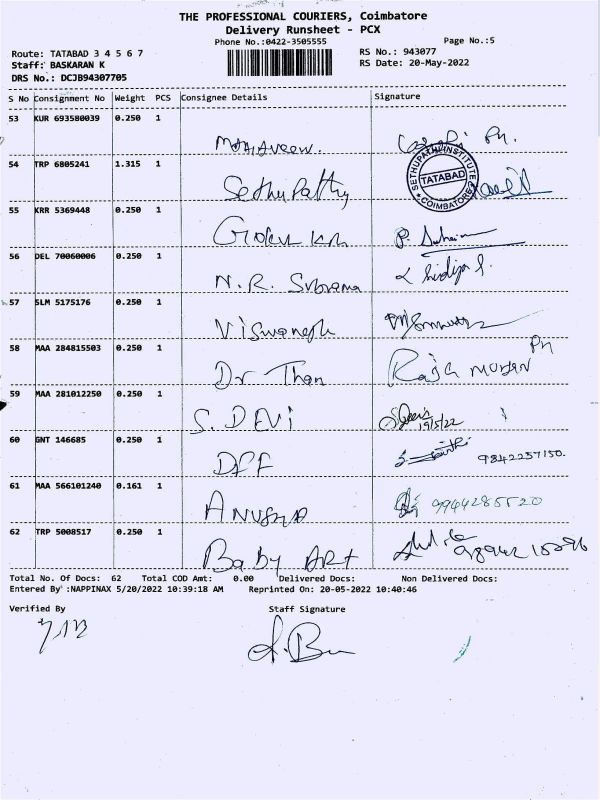 THE PROFESSIONAL COURIERS, Coimbatore
Delivery Runsheet - PCX
Phone No.:0422-3505555 Page No.:5
Route: TATABAD 3 4 5 6 7 RS No.: 943077
Staff: BASKARAN K RS Date: 20-May-2022
DRS No.: DCJB94307705
S No Consignment No Weight PCS Consignee Details Signature
53 KUR 693580039 0.250 1
54 TRP 6805241 1.315 1 Sethupathy SETHUPATHI INSTITUTE TATABAD COIMBATORE
55 KRR 5369448 0.250 1
56 DEL 70060006 0.250 1 N.R. Subrama
57 SLM 5175176 0.250 1
58 MAA 284815503 0.250 1 Dr Than Raja mohan Ph
59 MAA 281012250 0.250 1 S. DEVI 19/5/22
60 GNT 146685 0.250 1 DFF 9842257150.
61 MAA 566101240 0.161 1 9944285520
62 TRP 5008517 0.250 1 Baby ART
Total No. Of Docs: 62 Total COD Amt: 0.00 Delivered Docs: Non Delivered Docs:
Entered By :NAPPINAX 5/20/2022 10:39:18 AM Reprinted On: 20-05-2022 10:40:46
Verified By Staff Signature